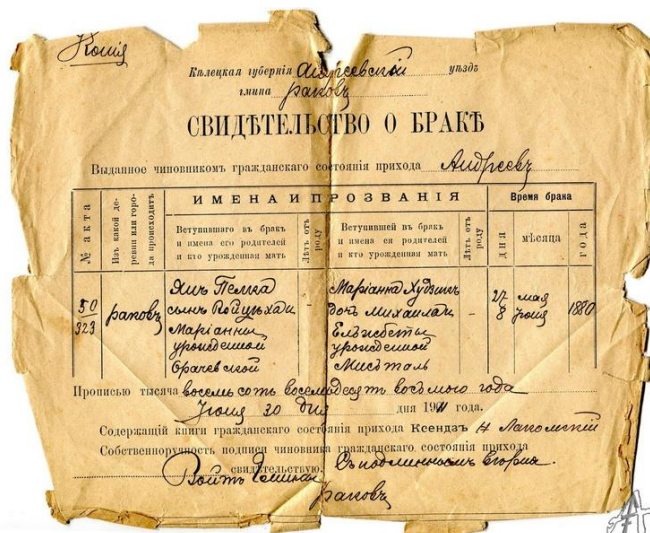 Копія
Кѣлецкая губернія Андреевскій уѣздъ
гмина Раковъ
СВИДѢТЕЛЬСТВО О БРАКѢ
Выданное чиновникомъ гражданскаго состоянія прихода Андреевъ
№ акта
Изъ какой деревни или города происходитъ
ИМЕНА И ПРОЗВАНІЯ
Время брака
Вступившаго въ бракъ и имена его родителей и кто урожденная мать
Лѣтъ отъ роду
Вступившей въ бракъ и имена ея родителей и кто урожденная мать
Лѣтъ отъ роду
дня
мѣсяца
года
50
323
Раковъ
Янъ
сынъ
Маріанны
урожденной
-
Маріанна
дочь Михаила и
Елисбеты
урожденной
-
27 мая
8 Іюня
1880
Прописью тысяча восемьсотъ восемьдесятъ года
Іюня 30 дня дня 1911 года.
Содержащій книги гражданскаго состоянія прихода Ксендзъ
Собственноручность подписи чиновника гражданскаго состоянія прихода
свидѣтельствую. Съ подлиннымъ вѣрно.
Войтъ гмины
Раковъ